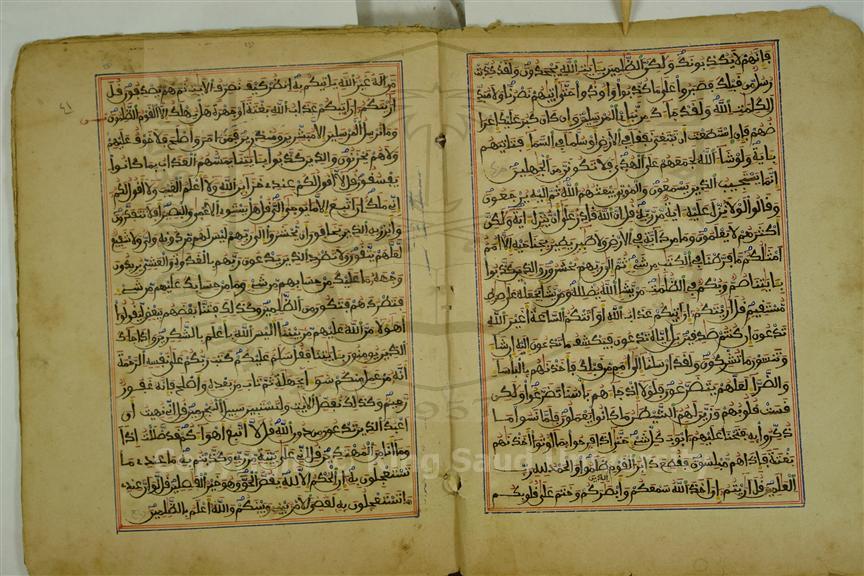 فإنهم لا يكذبونك ولكن الظلمين بايت الله يجحدون ولقد كذبت
رسل من قبلك فصبروا على ما كذبوا وأوذوا حتى أتيهم نصرنا ولا مبدل
لكلمت الله ولقد جاءك من نبإى المرسلين وإن كان كبر عليك إعرا
ضهم فإن استطعت أن تبتغى نفقا فى الأرض أو سلما فى السماء فتاتيهم
باية ولو شاء الله لجمعهم على الهدى فلا تكونن من الجهلين
إنما يستجيب الذين يسمعون والموتى يبعثهم الله ثم إليه يرجعون
وقالوا لولا نزل عليه اية من ربه قل إن الله قادر على أن ينزل اية ولكن
أكثرهم لا يعلمون وما من دابة فى الأرض ولا طير يطير بجناحيه إلا أمم
أمثالكم ما فرطنا فى الكتب من شىء ثم إلى ربهم يحشرون والذين كذبوا
بايتنا صم وبكم فى الظلمت من يشإ الله يضلله ومن يشأ يجعله على صرط
مستقيم قل أريتكم إن أتيكم عذاب الله أو أتتكم الساعة أغير الله
تدعون إن كنتم صدقين بل إياه تدعون فيكشف ما تدعون إليه إن شاء
وتنسون ما تشركون ولقد أرسلنا إلى أمم من قبلك فأخذنهم بالبأساء
والضراء لعلهم يتضرعون فلولا إذ جاءهم بأسنا تضرعوا ولكن
قست قلوبهم وزين لهم الشيطن ما كانوا يعملون فلما نسوا ما
ذكروا به فتحنا عليهم أبوب كل شىء حتى إذا فرحوا بما أوتوا أخذنهم
بغتة فإذا هم مبلسون فقطع دابر القوم الذين ظلموا والحمد لله رب
العلمين قل أريتم إن أخذ الله سمعكم وأبصركم وختم على قلوبكم
من اله غير الله ياتيكم به انظر كيف نصرف الأيت ثم هم يصدفون قل
أريتكم إن أتيكم عذاب الله بغتة أو جهرة هل يهلك إلا القوم الظلمون
وما نرسل المرسلين إلا مبشرين ومنذرين فمن امن وأصلح فلا خوف عليهم
ولا هم يحزنون والذين كذبوا بايتنا يمسهم العذاب بما كانوا
يفسقون قل لا أقول لكم عندى خزائن الله ولا أعلم الغيب ولا أقول لكم
إنى ملك إن أتبع إلا ما يوحى إلى قل هل يستوى الأعمى والبصير أفلا تتفكرون
وأنذر به الذين يخافون أن يحشروا إلى ربهم ليس لهم من دونه ولى ولا شفيع
لعلهم يتقون ولا تطرد الذين يدعون ربهم بالغدوة والعشى يريدون
وجهه ما عليك من حسابهم من شىء وما من حسابك عليهم من شىء
فتطردهم فتكون من الظلمين وكذلك فتنا بعضهم ببعض ليقولوا
أهؤلاء من الله عليهم من بيننا أليس الله بأعلم بالشكرين وإذا جاءك
الذين يومنون بايتنا فقل سلم عليكم كتب ربكم على نفسه الرحمة
أنه من عمل منكم سوءا بجهلة ثم تاب من بعده وأصلح فإنه غفور
رحيم وكذلك نفصل الأيت ولتستبين سبيل المجرمين قل إنى نهيت أن
أعبد الذين تدعون من دون الله قل لا أتبع أهواءكم قد ضللت إذا
وما أنا من المهتدين قل إنى على بينة من ربى وكذبتم به ما عندى ما
تستعجلون به إن الحكم إلا لله يقص الحق وهو خير الفصلين قل لو أن عندى
ما تستعجلون به لقضى الأمر بينى وبينكم والله أعلم بالظلمين